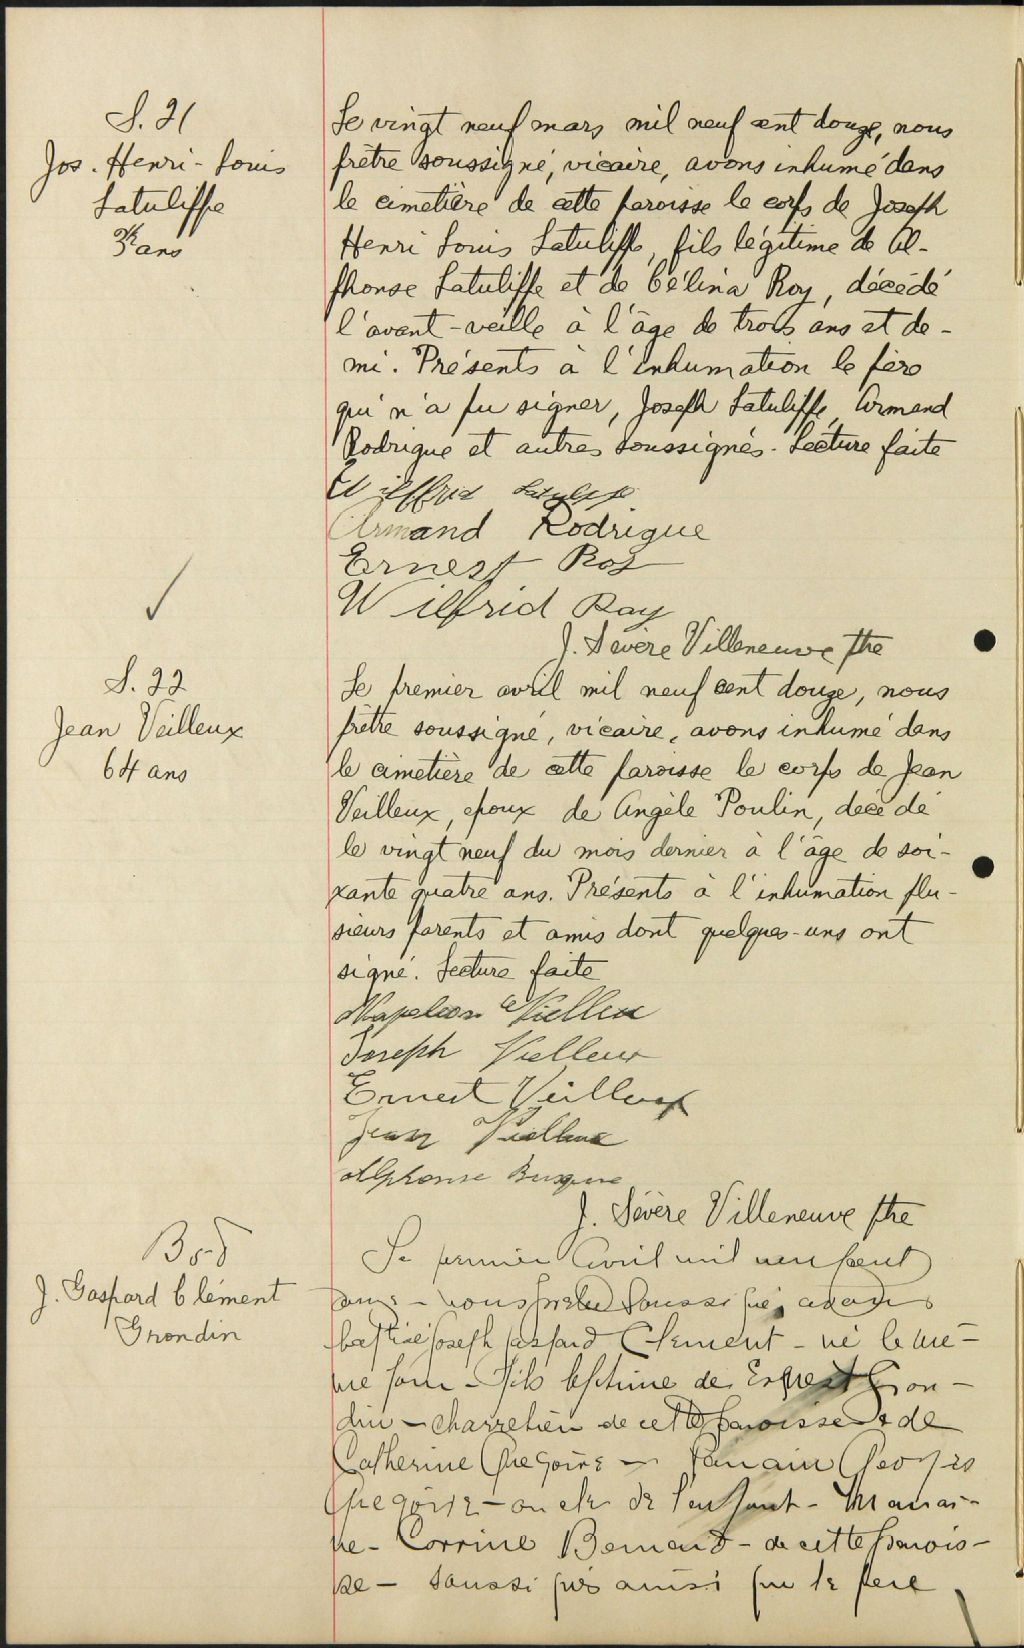 S. 21
Jos. Henri-Louis
Latuliffe
3½ ans
Le vingt neuf mars mil neuf cent douze, nous
prêtre soussigné, vicaire, avons inhumé dans
le cimetière de cette paroisse le corps de Joseph
Henri Louis Latuliffe, fils légitime de Al-
phonse Latuliffe et de Célina Roy, décédé
l'avant-veille à l'âge de trois ans et de-
mi. Présents à l'inhumation le père
qui n'a pu signer, Joseph Latuliffe, Armand
Rodrigue et autres soussignés. Lecture faite
Wilffrid
Armand Rodrigue
Ernest Roy
Wilfrid Roy
J. Sévère Villeneuve ptre
S. 22
Jean Veilleux
64 ans
Le premier avril mil neuf cent douze, nous
prêtre soussigné, vicaire, avons inhumé dans
le cimetière de cette paroisse le corps de Jean
Veilleux, epoux de Angèle Poulin, décédé
le vingt neuf du mois dernier à l'âge de soi-
xante quatre ans. Présents à l'inhumation plu-
sieurs parents et amis dont quelques-uns ont
signé. Lecture faite
Napoleon Vielleu
Joseph Vielleux
Ernest Veilleux
Jean Vielleux
Alphonse Busque
J. Sévère Villeneuve ptre
B 58
J. Gaspard Clément
Grondin
Le premier Avril mil neuf cent
douze - nous prêtre soussigné, avons
baptisé Joseph Gaspard Clement - né le mê-
me jour - fils légitime de Ernest Gron-
din - charretier de cette paroisse & de
Catherine Gregoire - Parrain Georges
Gregoire - oncle de l'enfant - Marrai-
ne - Corrine Bernard - de cette parois-
se - soussignés ainsi que le père